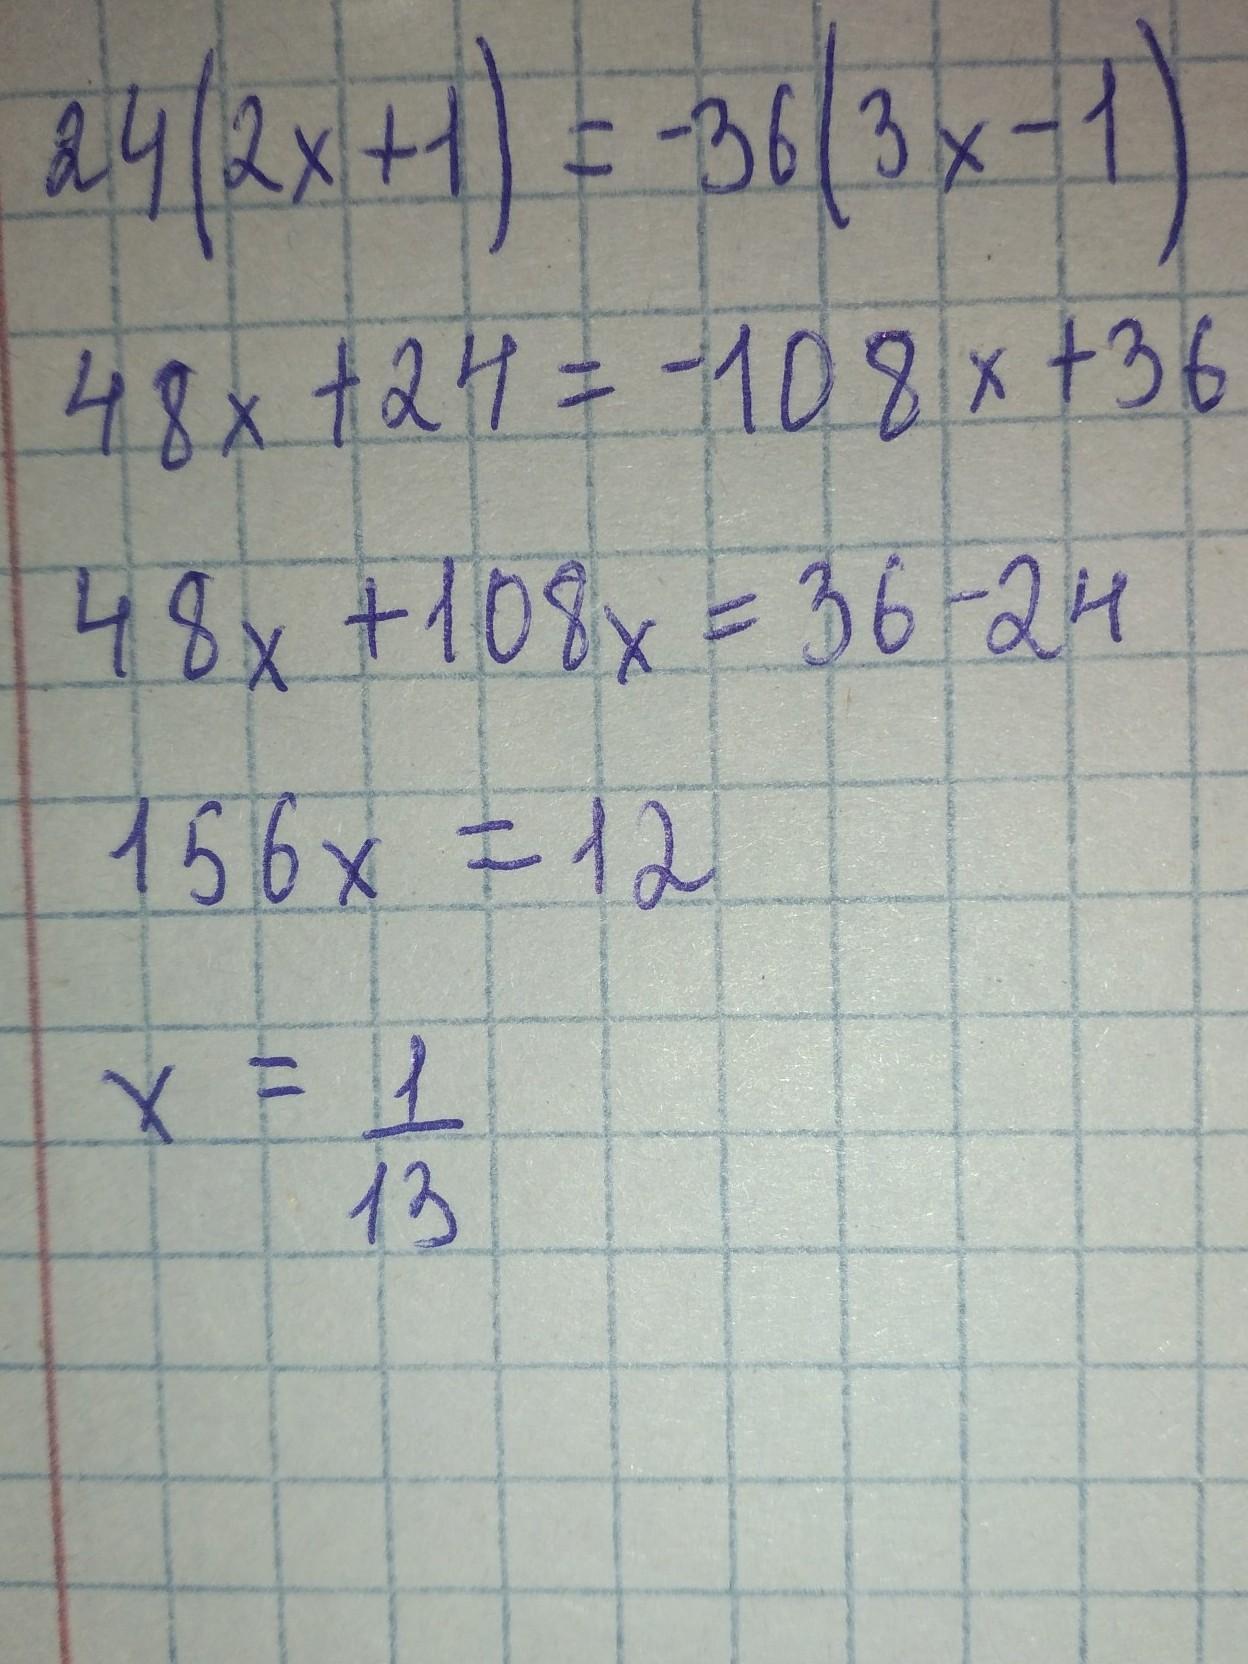 24(2x+1) = -36(3x-1)
48x +24 = -108x +36
48x +108x = 36-24
156x = 12
x = 1/13